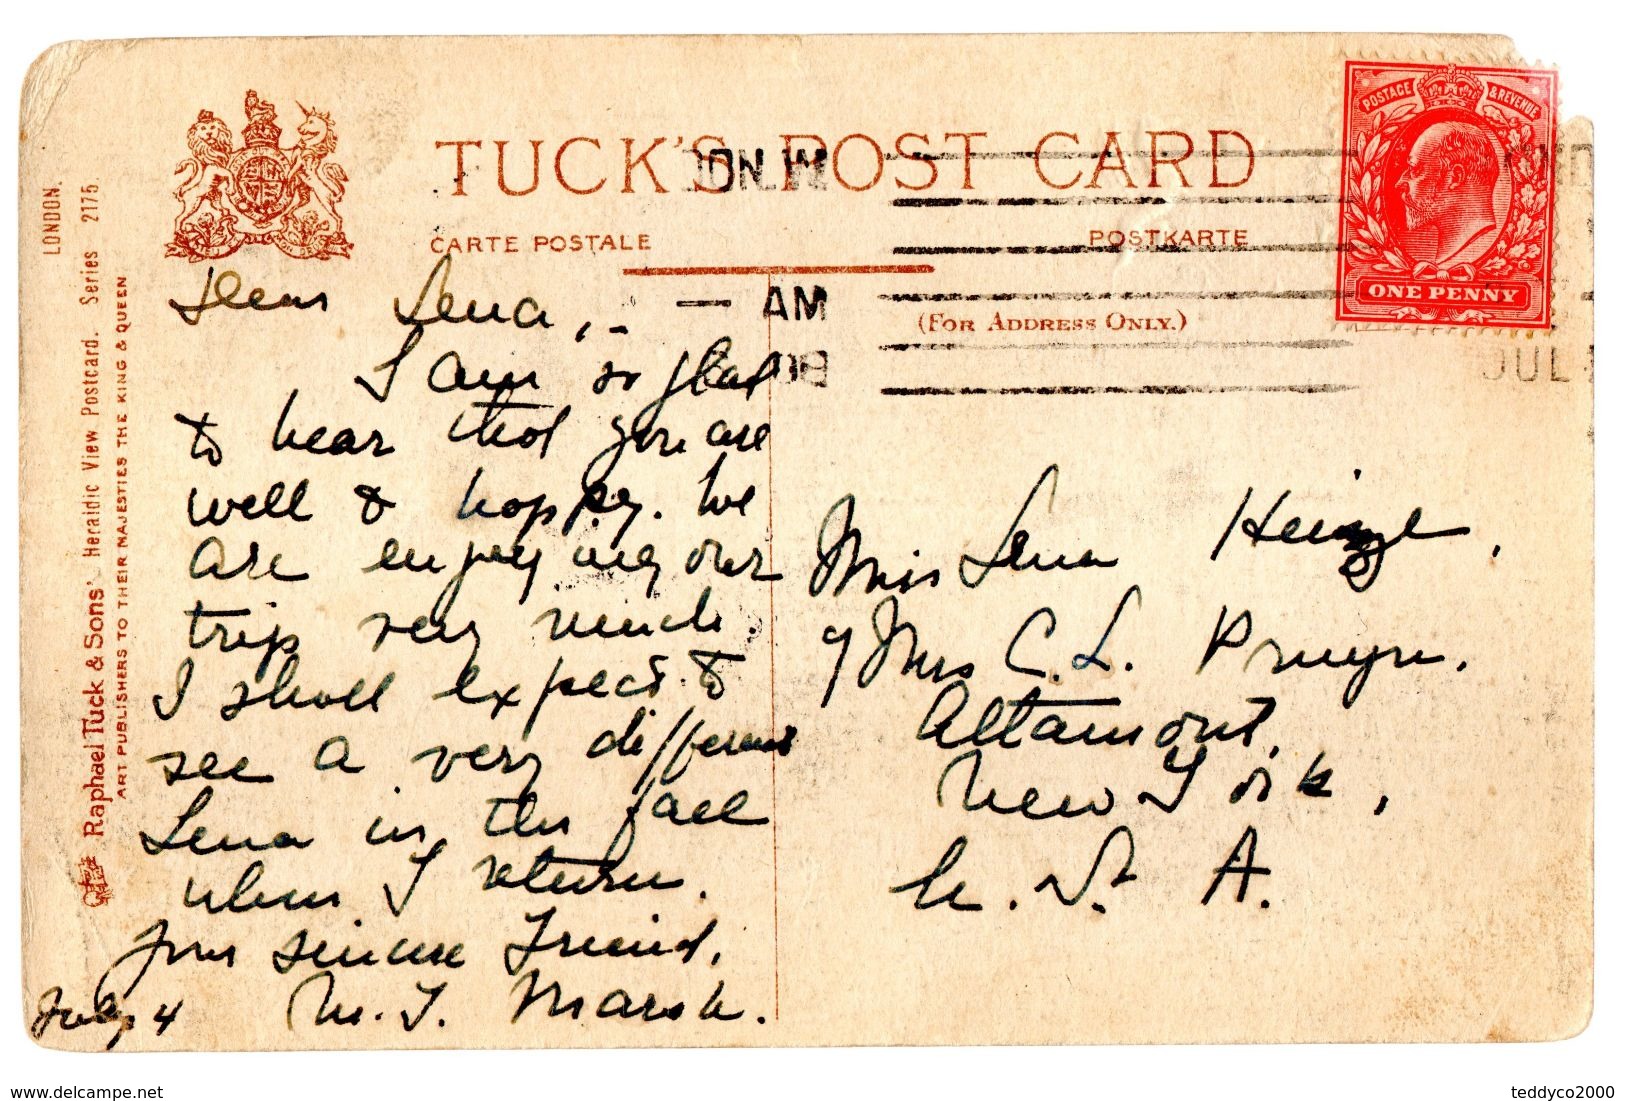 TUCK'S POST CARD
CARTE POSTALE
POSTKARTE
(FOR ADDRESS ONLY.)
POSTAGE & REVENUE
ONE PENNY
LONDON.
Raphael Tuck & Sons' Heraldic View Postcard. Series 2175
ART PUBLISHERS TO THEIR MAJESTIES THE KING & QUEEN
DON.W
AM
08
JUL
Dear Lena,-
I am so glad
to hear that you are
well & happy. We
are enjoying our
trip very much.
I shall expect to
see a very different
Lena in the fall
when I return.
Your sincere Friend,
M. T. Marsh.
July 4
Miss Lena Heinze,
c/ Mrs C. L. Pruyn.
Altamont,
New York,
U. S. A.
delcampe.net
teddyco2000